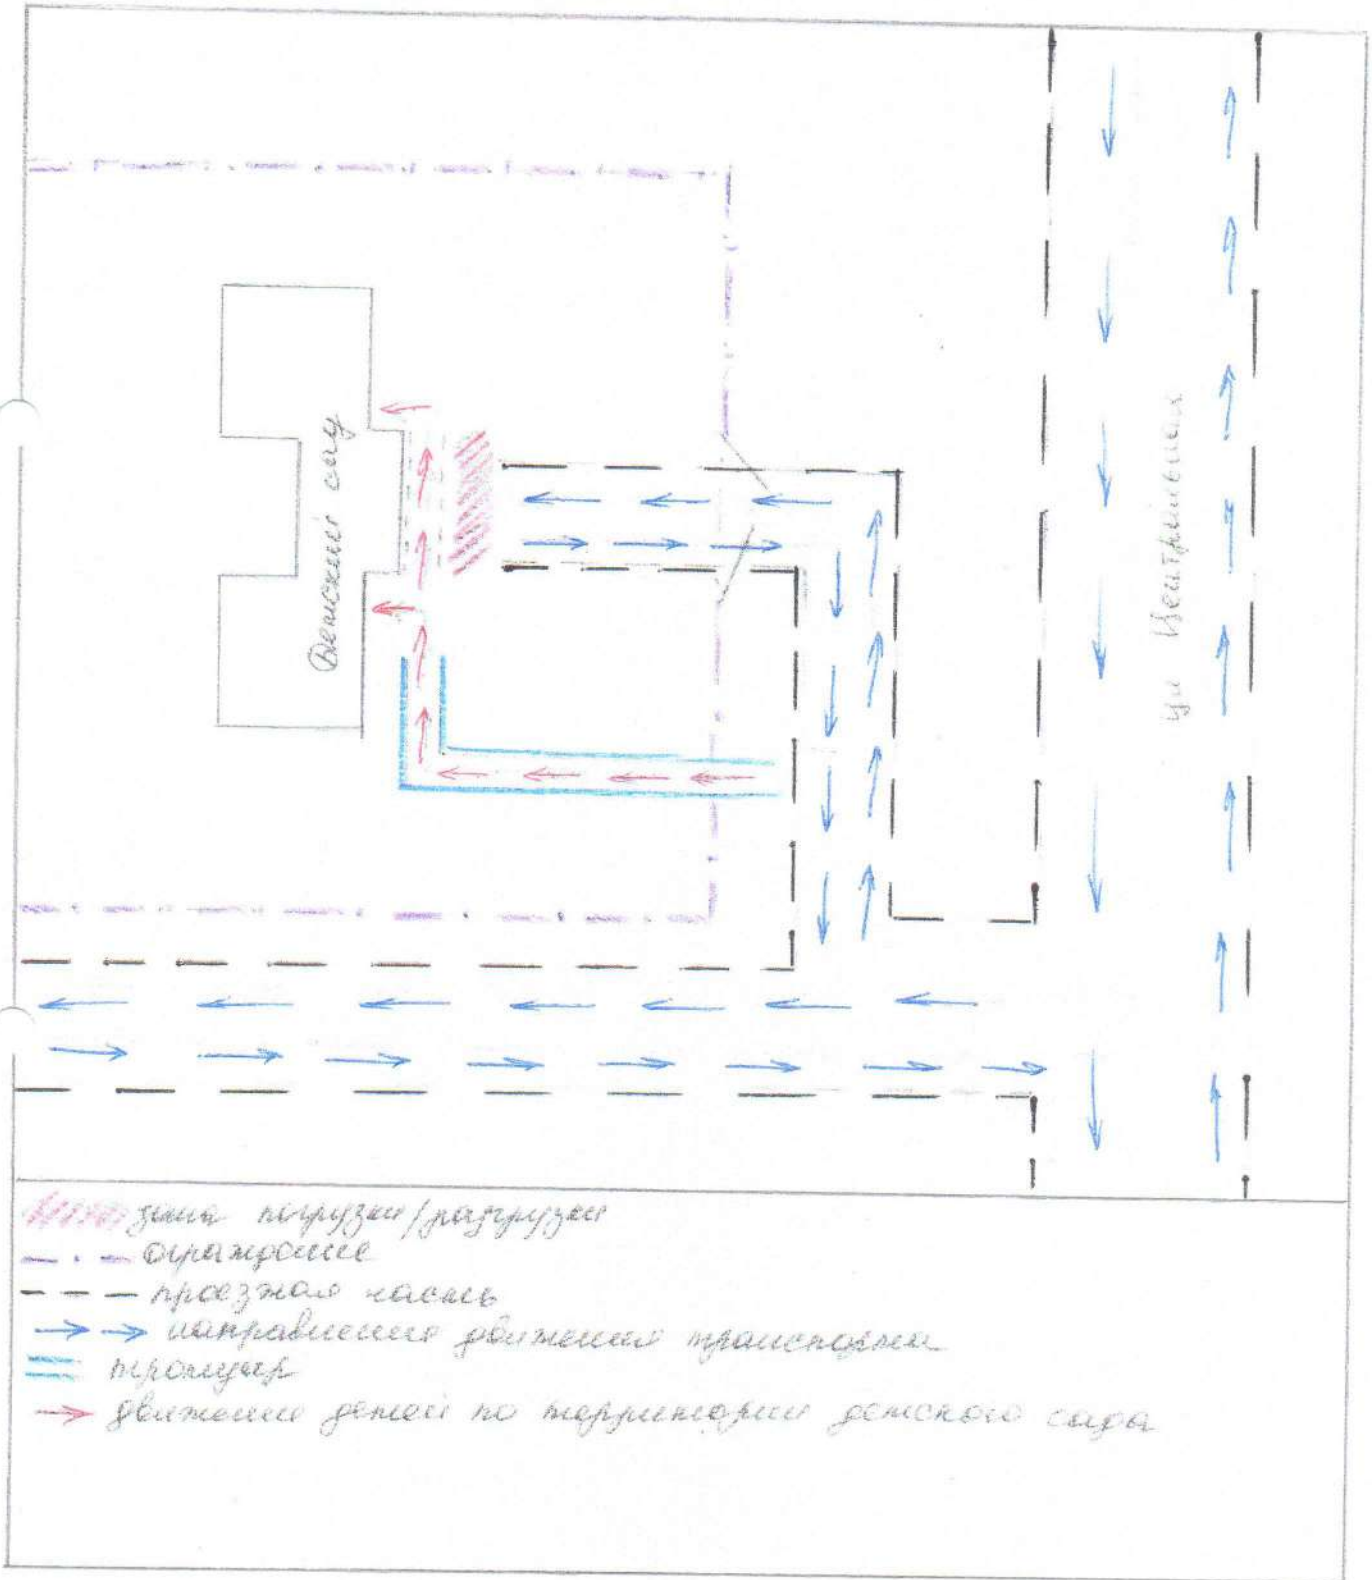 Детский сад
ул Центральная
зона погрузки/разгрузки
ограждение
проезжая часть
направление движения транспорта
тротуар
движение детей по территории детского сада